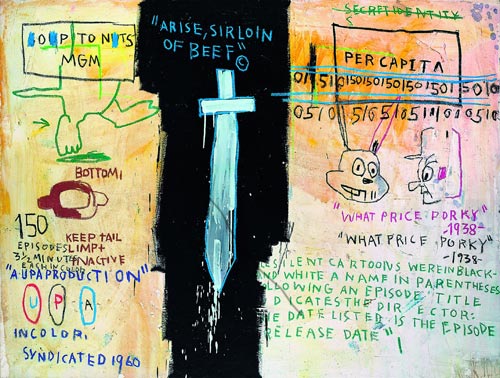 SOUP TO NUTS
MGM
BOTTOM1
150
EPISODES
3½ MINUTE
EACH IN COLOR
KEEP TAIL
LIMP +
INACTIVE
"A UPA PRODUCTION"
U P A
IN COLOR:
SYNDICATED 1960
"ARISE, SIRLOIN
OF BEEF"©
SECRET IDENTITY
S
PER CAPITA
"WHAT PRICE PORKY"
-1938-
"WHAT PRICE PORKY"
-1938-
ESILENT CARTOONS WERE IN BLACK-
AND WHITE A NAME IN PARENTHESES
LLOWING AN EPISODE TITLE
DICATES THE DIRECTOR:
E DATE LISTED IS THE EPISODE
RELEASE DATE"